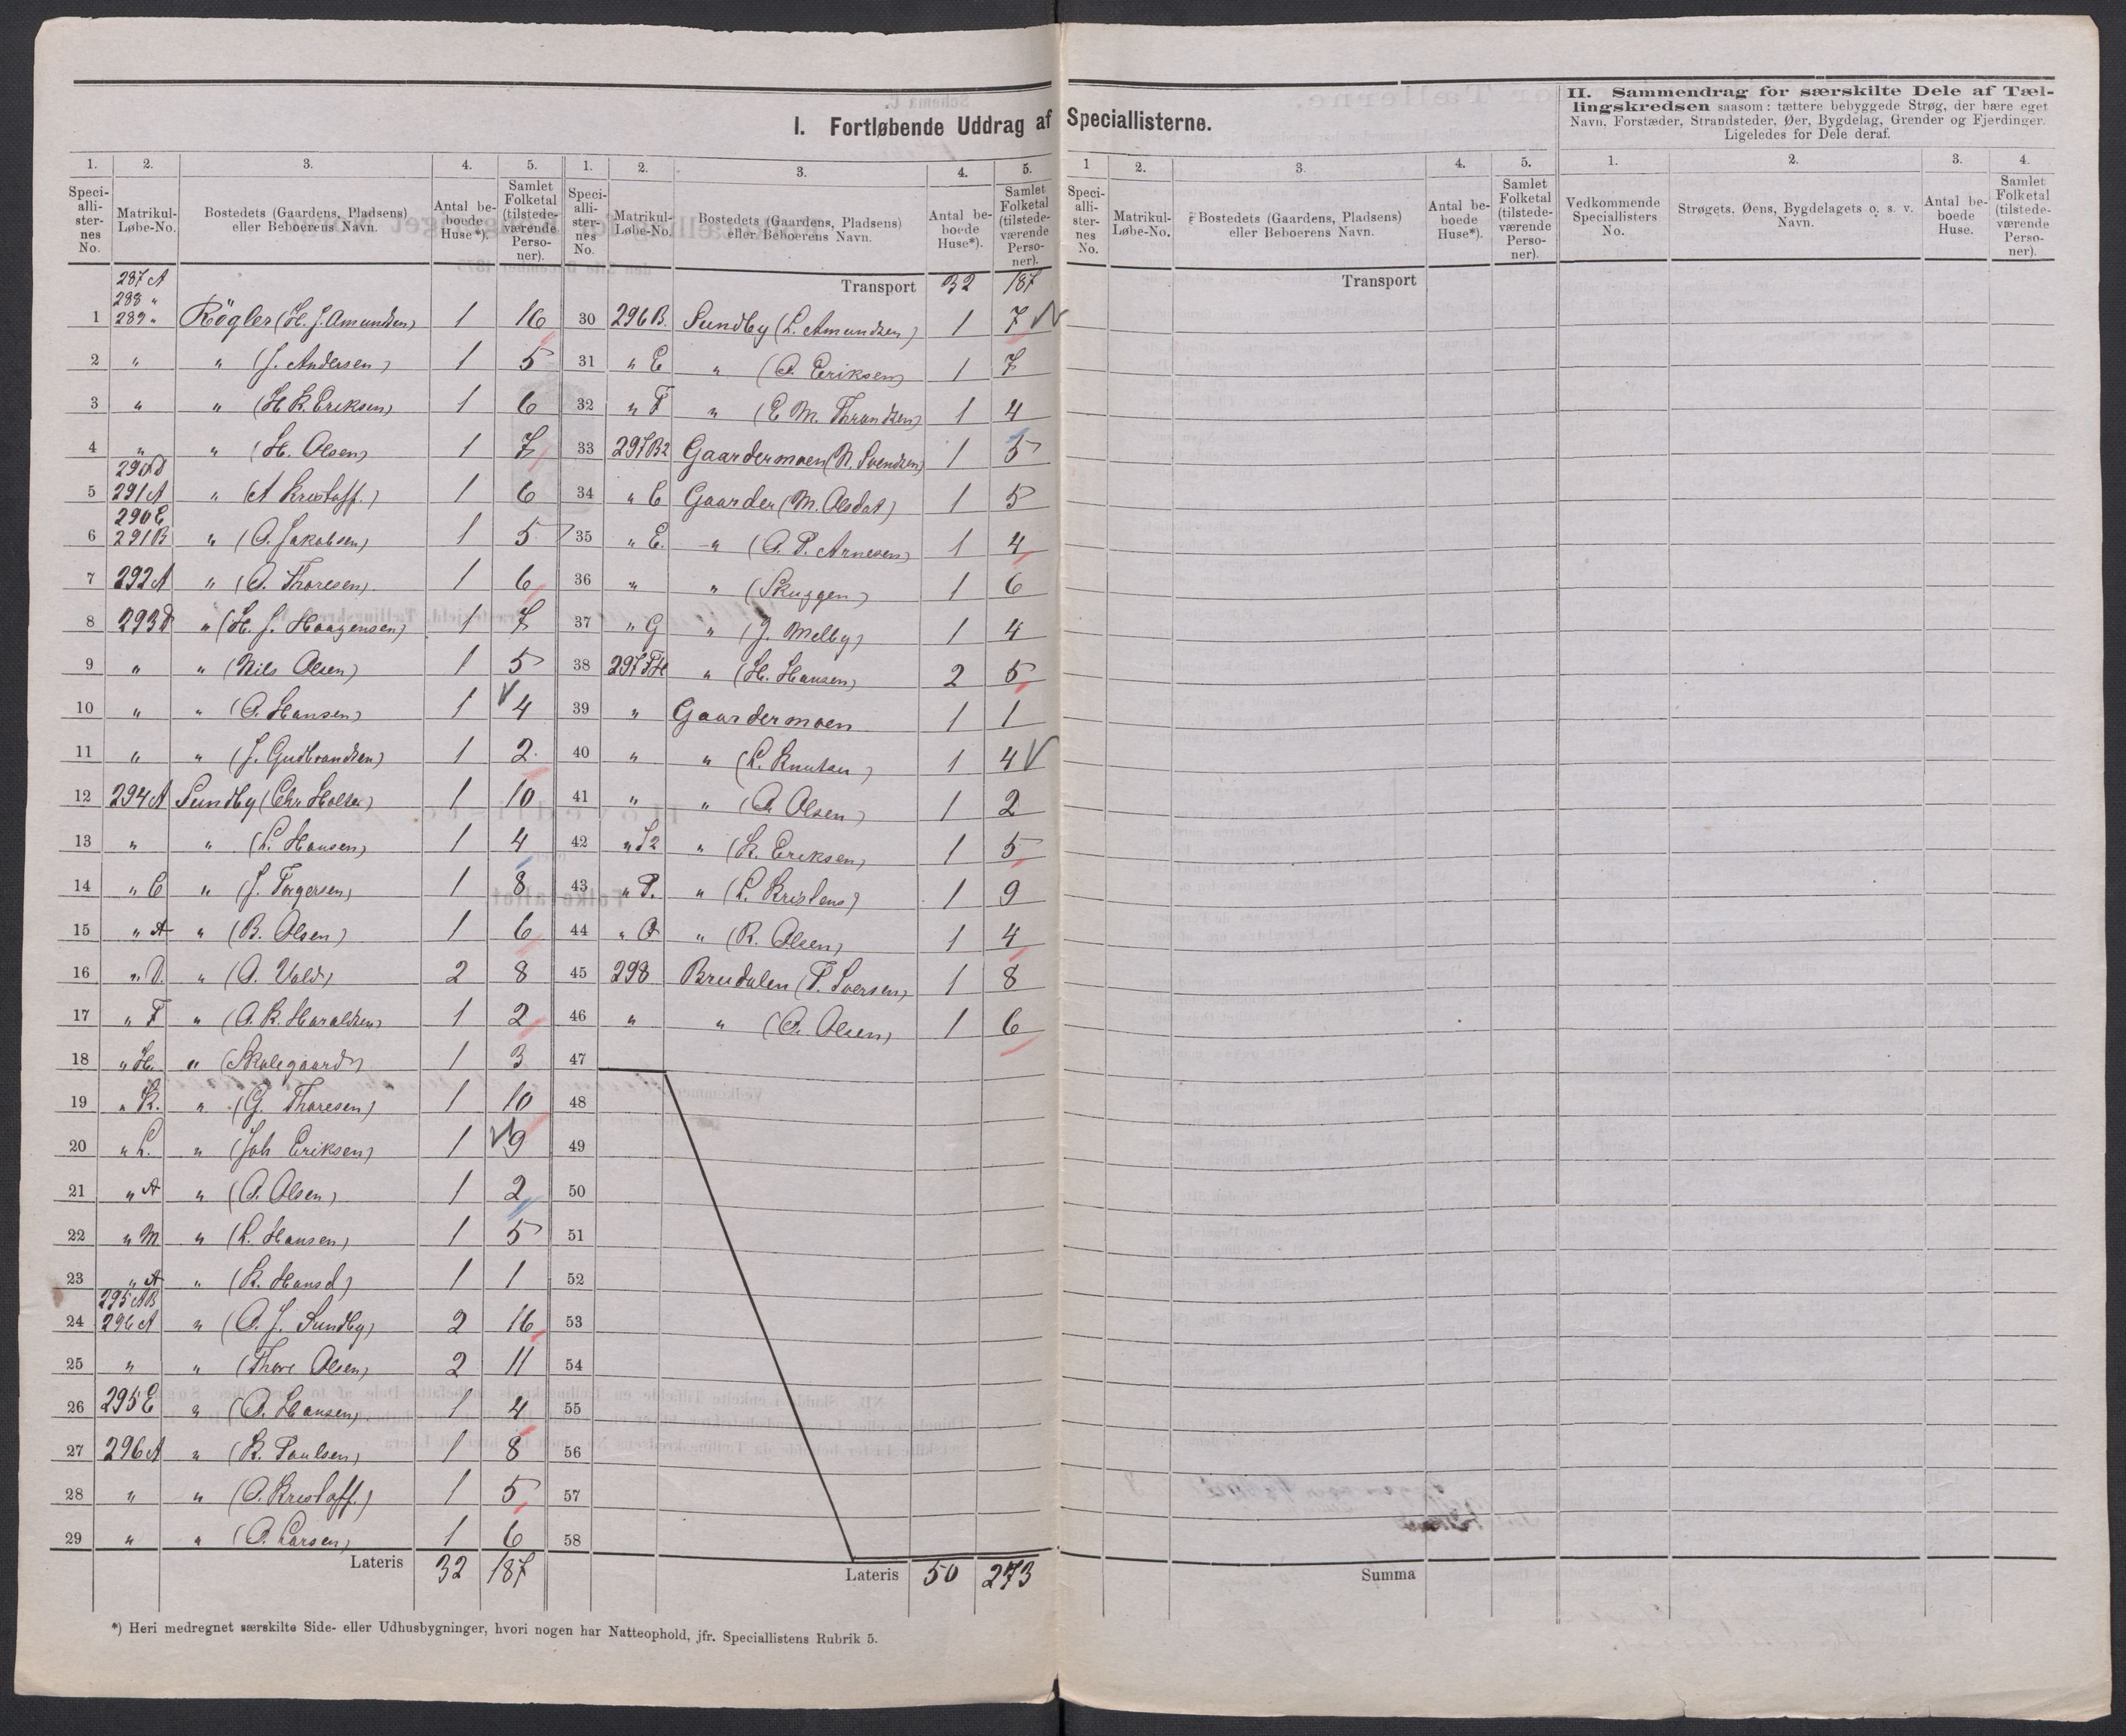 I. Fortløbende Uddrag af Speciallisterne.
1. 2. 3. 4. 5.
Speciallisternes No. Matrikul-Løbe-No. Bostedets (Gaardens, Pladsens) eller Beboerens Navn. Antal beboede Huse*). Samlet Folketal (tilstedeværende Personer).
287 A
288 "
1 289 " Rögler (H. J. Amundsen) 1 16
2 " " (J. Andersen) 1 5
3 " " (H. K. Eriksen) 1 6
4 " " (H. Olsen) 1 7
290 D
5 291 A " (A Kristoff.) 1 6
290 E
6 291 B " (O. Jakobsen) 1 5
7 292 A " (O. Thoresen) 1 6
8 293 D " (H. J. Haagensen) 1 7
9 " " (Nils Olsen) 1 5
10 " " (O. Hansen) 1 4
11 " " (J. Gudbrandsen) 1 2
12 294 A Sundby (Chr Holter) 1 10
13 " " (L. Hansen) 1 4
14 " C " (J. Torgersen) 1 8
15 " A " (B. Olsen) 1 6
16 " D. " (O. Vold) 2 8
17 " F " (O. K. Haraldsen) 1 2
18 " H. " (Skolegaard) 1 3
19 " K. " (G. Thoresen) 1 10
20 " L. " (Joh Eriksen) 1 9
21 " A " (O. Olsen) 1 2
22 " M " (L. Hansen) 1 5
23 " A " (K. Hansd) 1 1
295 AB
24 296 A " (O. J. Sundby) 2 16
25 " " (Thore Olsen) 2 11
26 295 E " (O. Hansen) 1 4
27 296 A " (K. Paulsen) 1 8
28 " " (O. Kristoff.) 1 5
29 " " (O. Larsen) 1 6
Lateris 32 187
1. 2. 3. 4. 5.
Speciallisternes No. Matrikul-Løbe-No. Bostedets (Gaardens, Pladsens) eller Beboerens Navn. Antal beboede Huse*). Samlet Folketal (tilstedeværende Personer).
Transport 32 187
30 296 B. Sundby (L. Amundsen) 1 7
31 " E " (O. Eriksen) 1 7
32 " F " (E M. Thrandsen) 1 4
33 297 B2 Gaardermoen (N. Svendsen) 1 5
34 " C Gaarder (M. Olsdat) 1 5
35 " E. " (O. P. Arnesen) 1 4
36 " " (Skuggen) 1 6
37 " G " (J. Melby) 1 4
38 297 FH " (H. Hansen) 2 5
39 " Gaardermoen 1 1
40 " " (L. Knutsen) 1 4
41 " " (O. Olsen) 1 2
42 " " (K. Eriksen) 1 5
43 " P. " (L. Kristens) 1 9
44 " O " (R. Olsen) 1 4
45 298 Bredalen (P. Iversen) 1 8
46 " " (O. Olsen) 1 6
47
48
49
50
51
52
53
54
55
56
57
58
Lateris 50 273
*) Heri medregnet særskilte Side- eller Udhusbygninger, hvori nogen har Natteophold, jfr. Speciallistens Rubrik 5.
1 2. 3. 4. 5.
Speciallisternes No. Matrikul-Løbe-No. Bostedets (Gaardens, Pladsens) eller Beboerens Navn. Antal beboede Huse*). Samlet Folketal (tilstedeværende Personer).
Transport
Summa
II. Sammendrag for særskilte Dele af Tællingskredsen saasom: tættere bebyggede Strøg, der bære eget
Navn, Forstæder, Strandsteder, Øer, Bygdelag, Grender og Fjerdinger.
Ligeledes for Dele deraf.
1. 2. 3. 4.
Vedkommende Speciallisters No. Strøgets, Øens, Bygdelagets o. s. v. Navn. Antal beboede Huse. Samlet Folketal (tilstedeværende Personer).